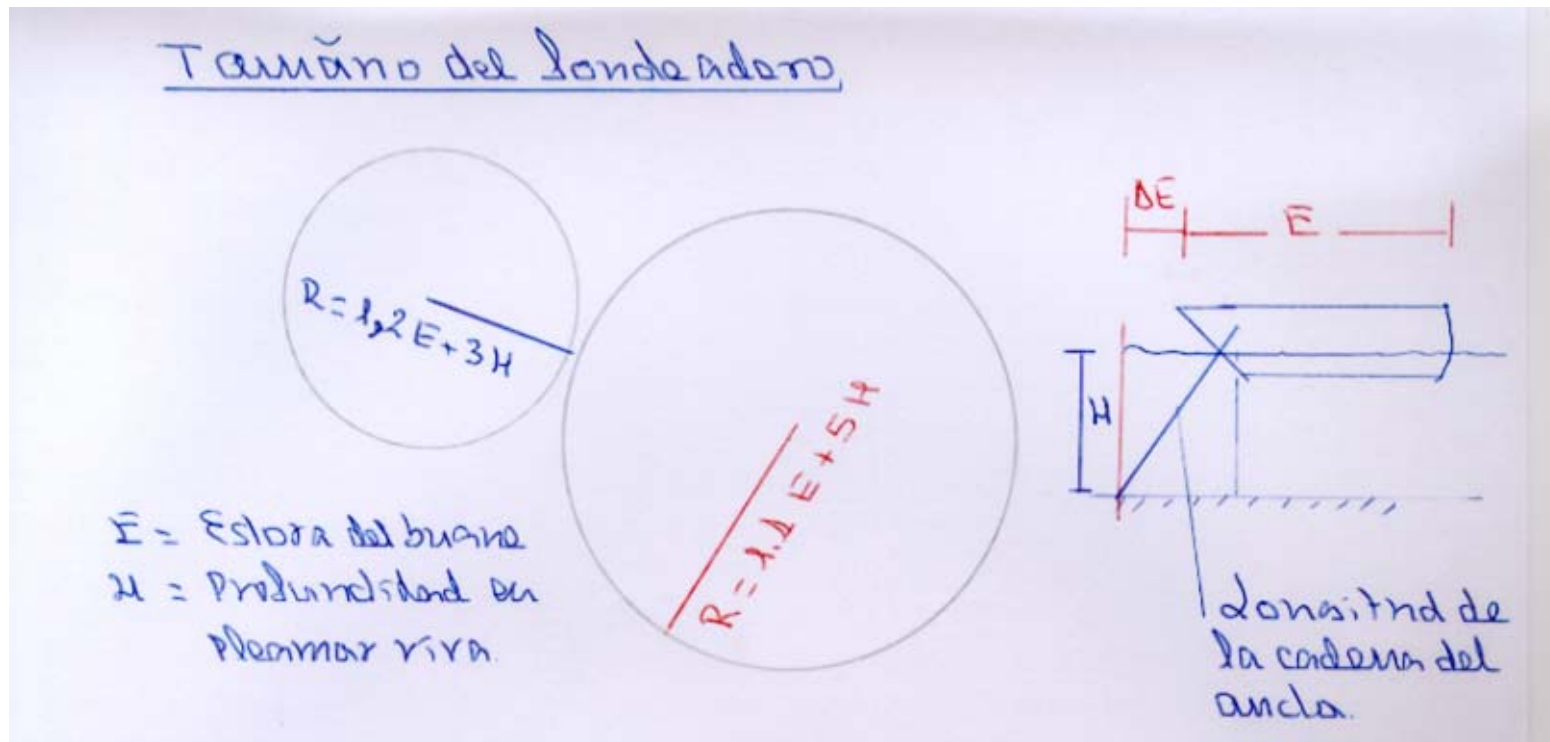 Tamaño del fondeadero
R = 1,2 E + 3 H
R = 1.1 E + 5 H
E = Eslora del buque
H = Profundidad en
pleamar viva.
ΔE
E
H
Longitud de
la cadena del
ancla.